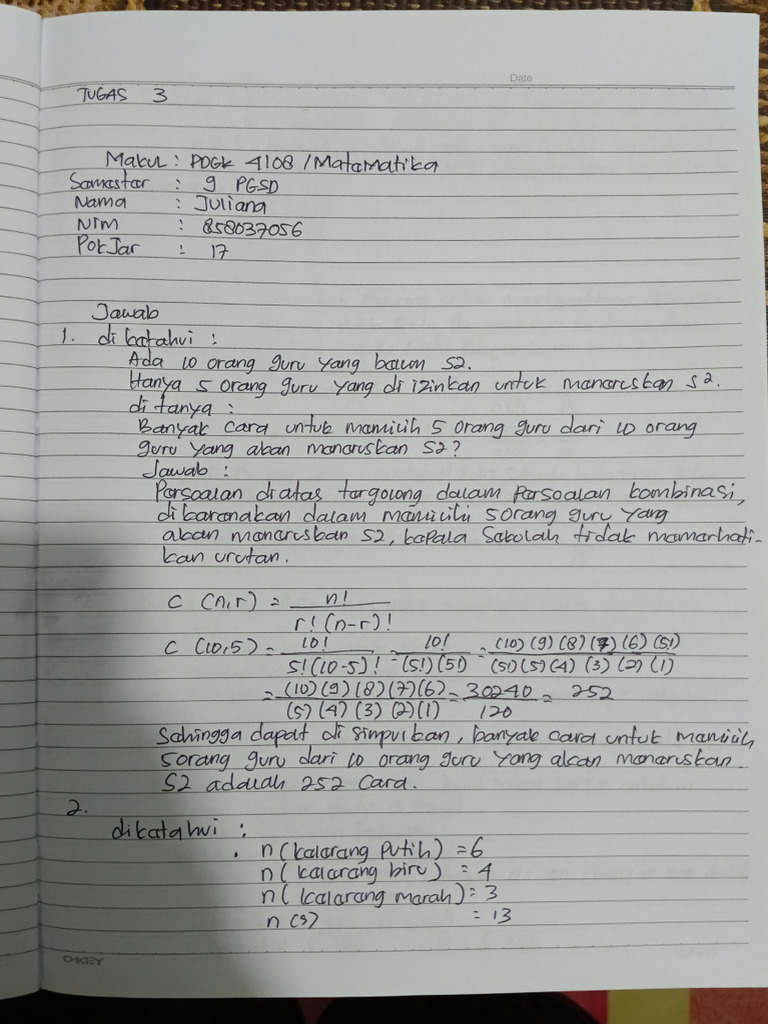 Date
TUGAS 3
Makul : PDGK 4108 / Matematika
Semester : 9 PGSD
Nama : Juliana
NIM : 858037056
PokJar : 17
Jawab
1. diketahui :
Ada 10 orang guru yang belum S2.
Hanya 5 orang guru yang di izinkan untuk meneruskan S2.
di tanya :
Banyak cara untuk memilih 5 orang guru dari 10 orang
guru yang akan meneruskan S2?
Jawab :
Persoalan diatas tergolong dalam Persoalan kombinasi,
dikarenakan dalam memilih 5orang guru yang
akan meneruskan S2, kepala Sekolah tidak memerhati-
kan urutan.
C (n,r) = n! / r! (n-r)!
C (10,5) = 10! / 5! (10-5)! = 10! / (5!) (5!) = (10) (9) (8) (7) (6) (5!) / (5!) (5) (4) (3) (2) (1)
= (10) (9) (8) (7) (6) / (5) (4) (3) (2) (1) = 30240 / 120 = 252
Sehingga dapat di simpulkan, banyak cara untuk memilih
5orang guru dari 10 orang guru yang akan meneruskan
S2 adalah 252 Cara.
2.
diketahui :
n (kelereng Putih) = 6
n (kelereng biru) = 4
n (kelereng merah) = 3
n (s) = 13
OKEY